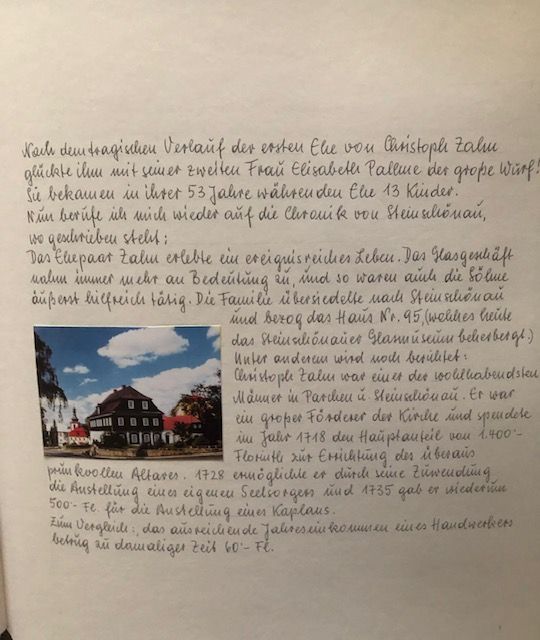 Nach dem tragischen Verlauf der ersten Ehe von Christoph Zahn
glückte ihm mit seiner zweiten Frau Elisabeth Palme der große Wurf!
Sie bekamen in ihrer 53 Jahre währenden Ehe 13 Kinder.
Nun berufe ich mich wieder auf die Chronik von Steinschönau,
wo geschrieben steht:
Das Ehepaar Zahn erlebte ein ereignisreiches Leben. Das Glasgeschäft
nahm immer mehr an Bedeutung zu, und so waren auch die Söhne
äußerst hilfreich tätig. Die Familie übersiedelte nach Steinschönau
und bezog das Haus Nr. 95, (welches heute
das Steinschönauer Glasmuseum beherbergt.)
Unter anderem wird noch berichtet:
Christoph Zahn war einer der wohlhabendsten
Männer in Parchen u. Steinschönau. Er war
ein großer Förderer der Kirche und spendete
im Jahr 1718 den Hauptanteil von 1.400.-
Florinth zur Errichtung des überaus
prunkvollen Altares. 1728 ermöglichte er durch seine Zuwendung
die Anstellung eines eigenen Seelsorgers und 1735 gab er wiederum
500.- Fl. für die Anstellung eines Kaplans.
Zum Vergleich: das ausreichende Jahreseinkommen eines Handwerkers
betrug zu damaliger Zeit 60.- Fl.